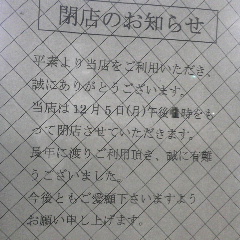 閉店のお知らせ
平素より当店をご利用いただき、
誠にありがとうございます。
当店は12月5日(月)午後時をも
って閉店させていただきます。
長年に渡りご利用頂き、誠に有難
うございました。
今後ともご愛顧下さいますよう
お願い申し上げます。